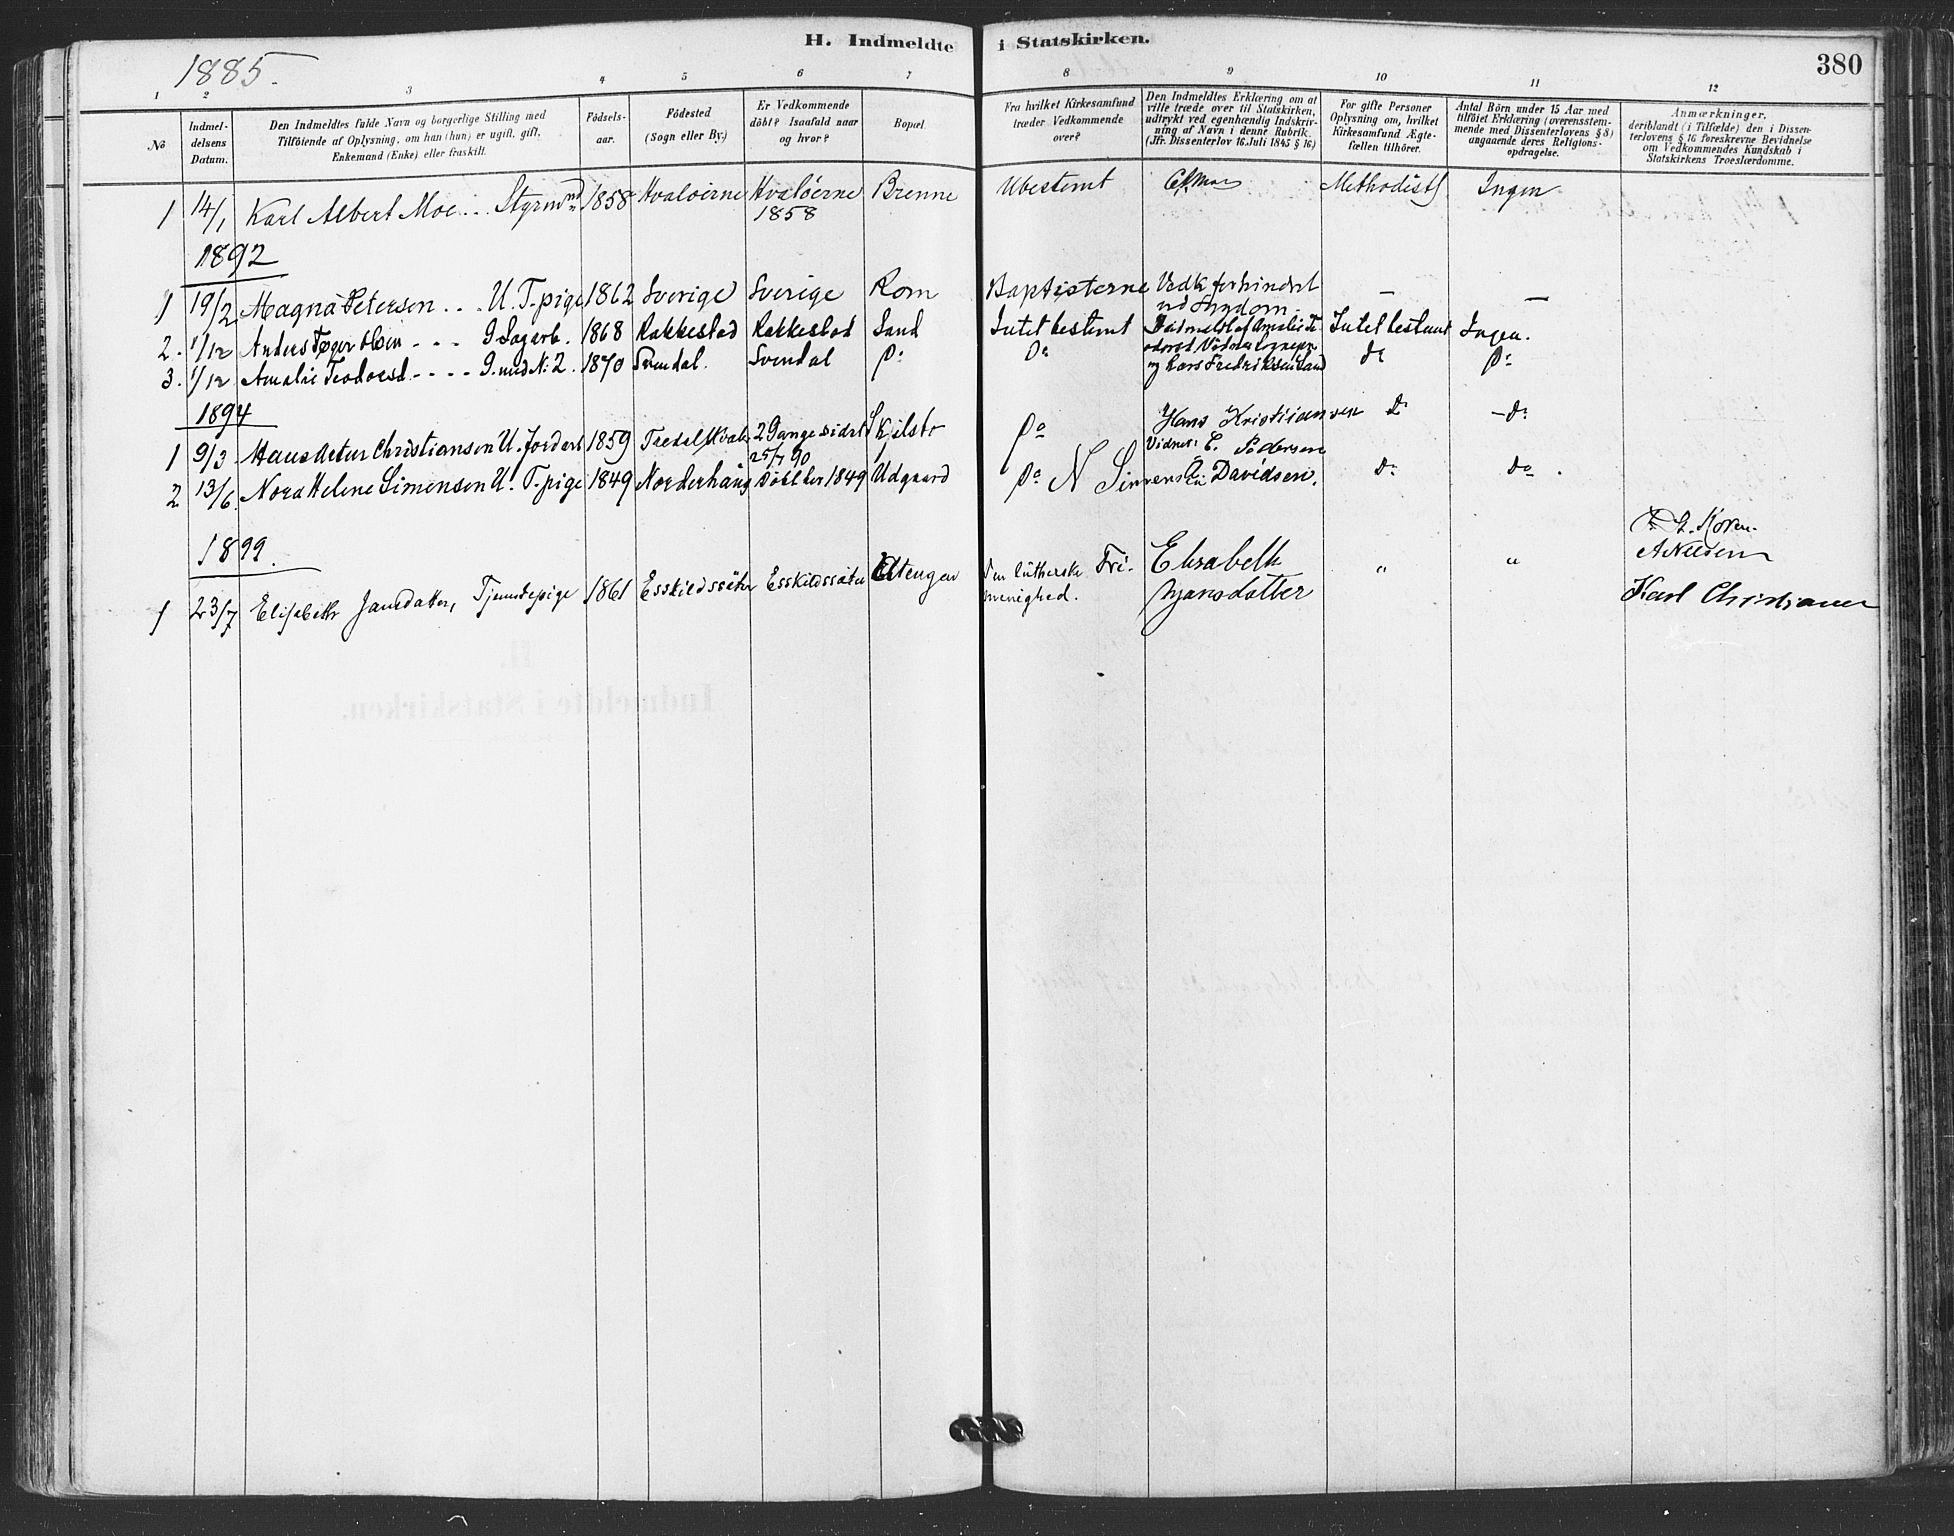 H. Indmeldte i Statskirken.
380
1885.
1 2 3 4 5 6 7 8 9 10 11 12
No
Indmel-
delsens
Datum.
Den Indmeldtes fulde Navn og borgerlige Stilling med
Tilføiende af Oplysning, om han (hun) er ugift, gift,
Enkemand (Enke) eller fraskilt.
Fødsels-
aar.
Fødested
(Sogn eller By.)
Er Vedkommende
døbt? Isaafald naar
og hvor?
Bopæl.
Fra hvilket Kirkesamfund
træder Vedkommende
over?
Den Indmeldtes Erklæring om at
ville træde over til Statskirken,
udtrykt ved egenhændig Indskriv-
ning af Navn i denne Rubrik.
(Jfr. Dissenterlov 16 Juli 1845 § 16)
For gifte Personer
Oplysning om, hvilket
Kirkesamfund Ægte-
fællen tilhører.
Antal Børn under 15 Aar med
tilføiet Erklæring (overensstem-
mende med Dissenterlovens § 8)
angaaende deres Religions-
opdragelse.
Anmærkninger,
deriblandt (i Tilfælde) den i Dissen-
terlovens § 16 foreskrevne Bevidnelse
om Vedkommendes Kundskab i
Statskirkens Troeslærdomme.
1 14/1 Karl Albert Moe . . Styrmnd 1858 Hvaløerne Hvaløerne Brenne Ubestemt Moe Methodist Ingen
1858
1892
1 19/2 Magna Petersen . . . U. T.pige 1862 Sverige Sverige Rom Baptisterne Vedk forhindret — —
ved Sygdom.
2. 1/12 Anders Tøger Olsen - - - G. Sagarb. 1868 Rakkestad Rakkestad Sand Intet bestemt Indmeldt af Amalie Te- Intet bestemt Ingen.
3. 1/12 Amalie Teodorsd. - - - - G. med N: 2. 1870 Svendal. Svendal Do Do do Do
og Lars Fredriksen Sand
1894
1 9/3 Hans Artur Christiansen U. Jordarb. 1859 2 Gange sidst Kjilsto Do Hans Kristiansen do - do
25/7 90 Vidner: C. Pedersen
2 13/6 Nora Helene Simensen U. T.pige 1849 Norderhaug Døbt her 1849 Udgaard Do N Simensen Davidsen. do do.
1899.
1 23/7 Elisabeth Jansdatter, Tjenestepige 1861 Esskildssæter Esskildssæter Utengen Den lutherske Fri- Elisabeth " "
menighed. Jansdatter
Koren.
A Nilsen
Karl Christiansen
H.
Indmeldte i Statskirken.